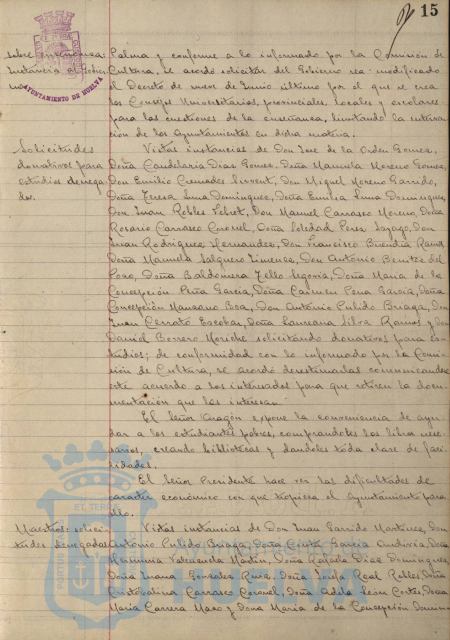 15
AYUNTAMIENTO DE HUELVA
sobre enseñanza:
Instancia al Gobier-
no.
Palma y conforme a lo informado por la Comisión de
Cultura, se acordó solicitar del Gobierno sea modificado
el Decreto de nueve de Junio último por el que se crea
los Consejos Universitarios, provinciales, locales y escolares
para las cuestiones de la enseñanza, limitando la interven-
ción de los Ayuntamientos en dicha materia.
Solicitudes
donativos para
estudios denega-
das.
Vistas instancias de Don José de la Orden Gomez,
Doña Candelaria Diaz Gomez, Doña Manuela Moreno Gomez,
Don Emilio Cremades Sirvent, Don Miguel Moreno Garrido,
Doña Teresa Luna Dominguez, Doña Emilia Luna Dominguez,
Don Juan Robles Febret, Don Manuel Carrasco Moreno, Doña
Rosario Carrasco Coronel, Doña Soledad Perez Lozago, Don
Juan Rodriguez Hernandez, Don Francisco Buendia Ramos,
Doña Manuela Salguero Jimenez, Don Antonio Benitez del
Pozo, Doña Baldomera Tello Segovia, Doña Maria de la
Concepción Peña Garcia, Doña Carmen Pena Garcia, Doña
Concepción Manzano Boa, Don Antonio Pulido Briaga, Don
Juan Cerrato Escobar, Doña Laureana Silva Ramos y Don
Daniel Borrero Moriche solicitando donativos para es-
tudios; de conformidad con lo informado por la Comi-
sión de Cultura, se acordó desestimarlas comunicandose
este acuerdo a los interesados para que retiren la docu-
mentación que les interesan.
El Señor Aragón expone la conveniencia de ayu-
dar a los estudiantes pobres, comprandoles los libros nece-
sarios, creando bibliotecas y dandoles toda clase de faci-
lidades.
El Señor Presidente hace ver las dificultades de
caracter económico con que tropieza el Ayuntamiento para
ello.
Maestros: solici-
tudes denegadas
Vistas instancias de Don Juan Garrido Martinez, Don
Antonio Pulido Briaga, Doña Cinta Garcia
Herminia Valenzuela Martin, Doña Rafaela Diaz Dominguez,
Doña Juana Gonzalez Ruiz, Doña Josefa Real Robles, Doña
Cristobalina Carrasco Coronel, Doña Adela Leon Cortes, Doña
Maria Carrera Mazo y Doña Maria de la Concepción